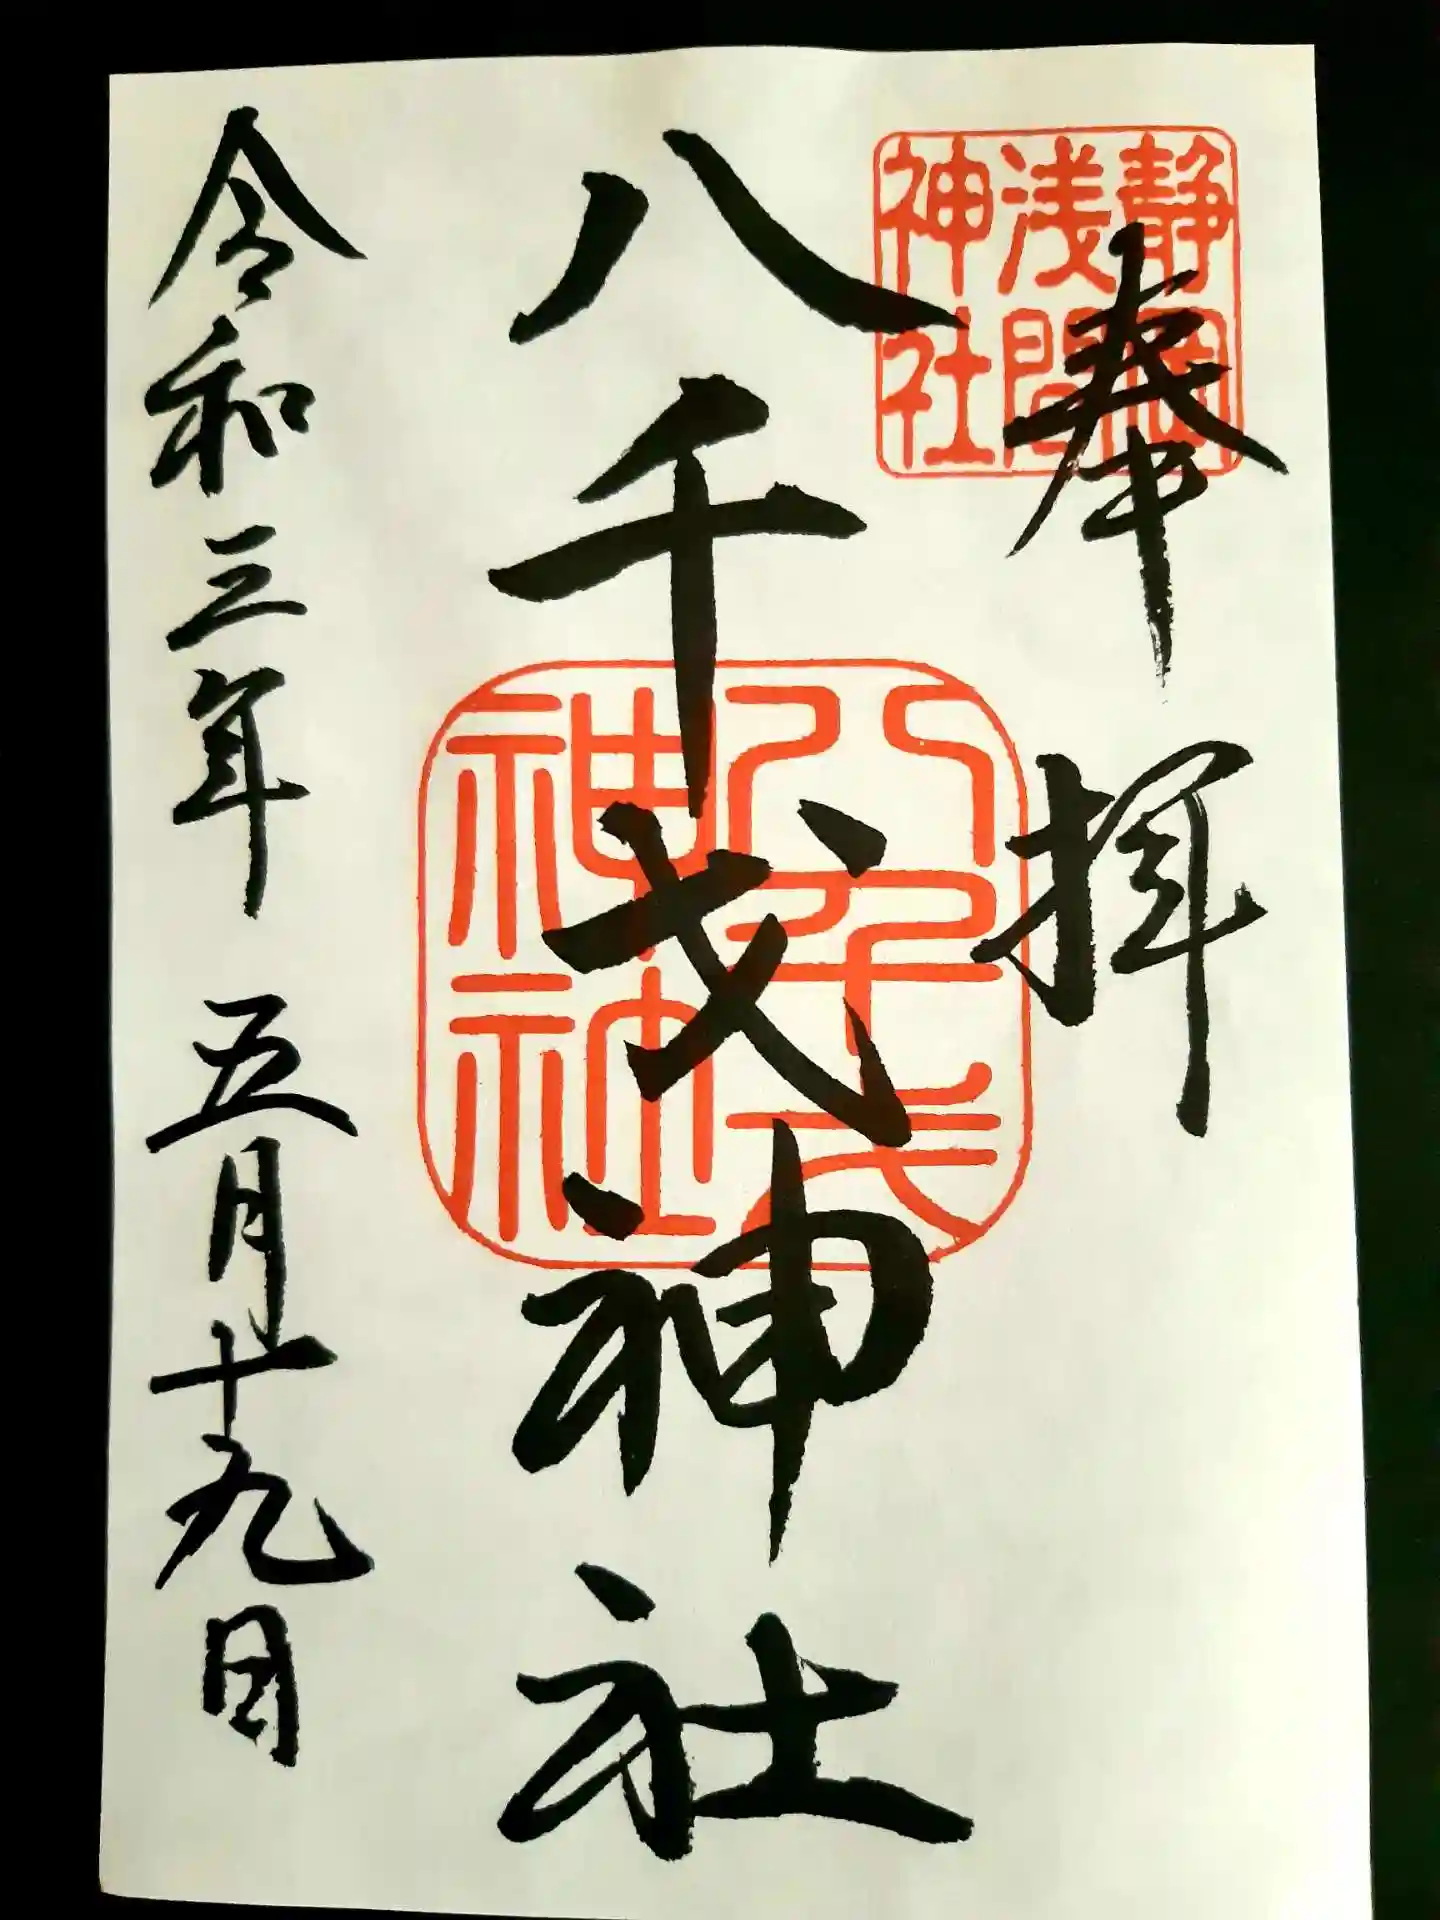 静岡
浅間
神社
奉拝
八千戈神社
八千戈
神社
令和三年 五月十九日